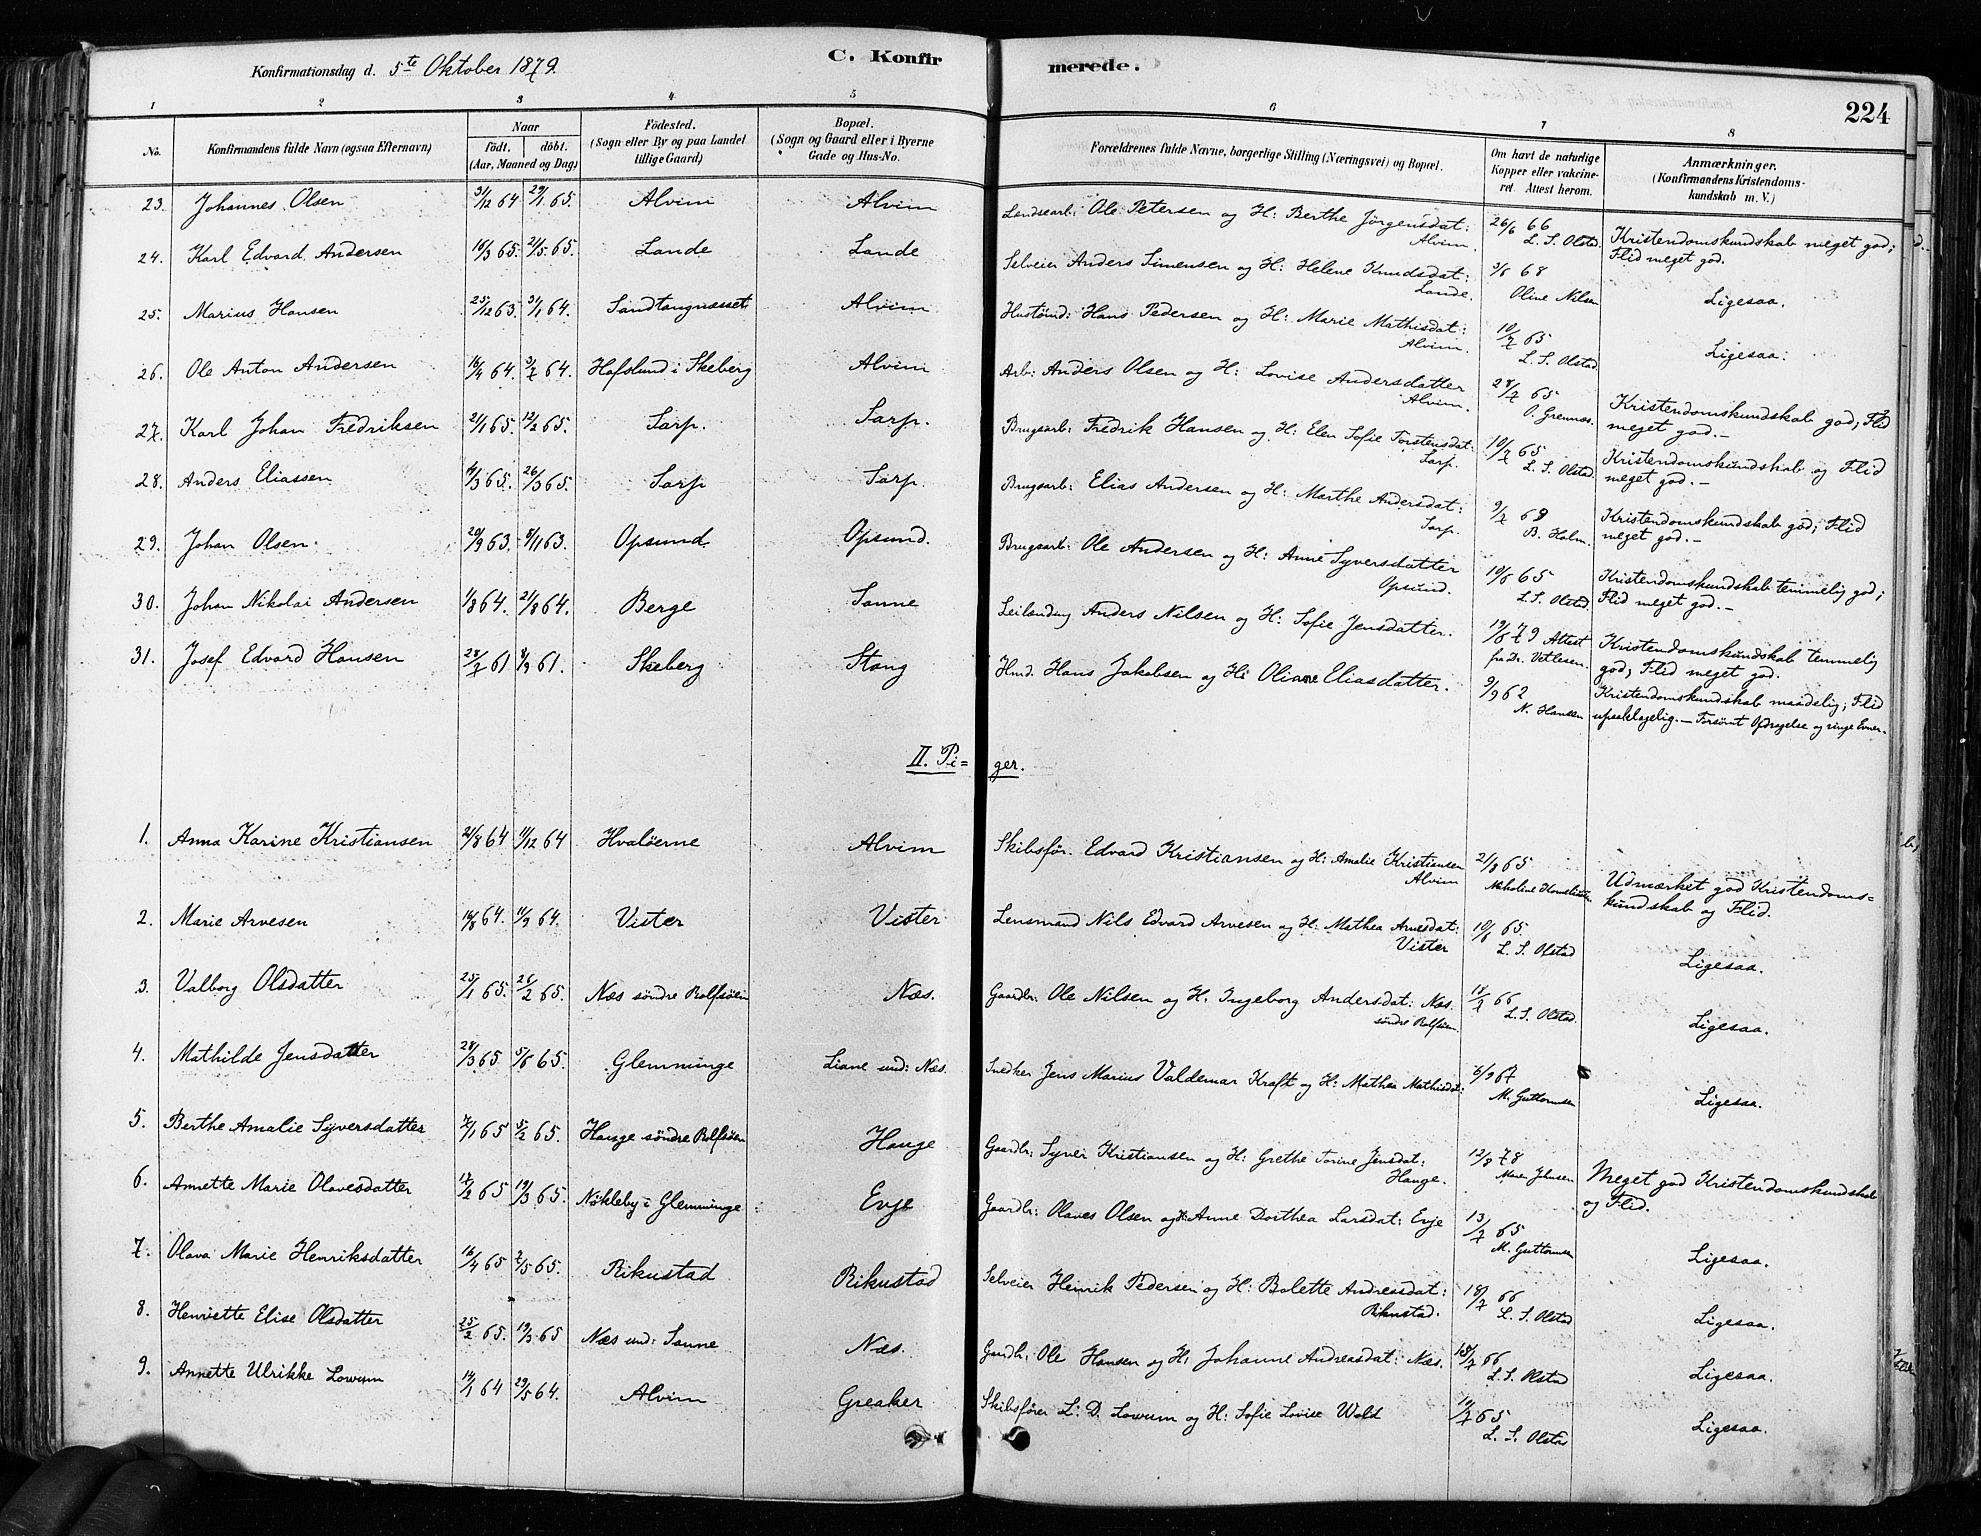 Konfirmationsdag d. 5te Oktober 1879. C. Konfirmerede. 224
1 2 3 4 5 6 7 8
No. Konfirmandens fulde Navn (ogsaa Efternavn) Naar født. døbt. (Aar, Maaned og Dag) Fødested. (Sogn eller By og paa Landet tillige Gaard) Bopæl. (Sogn og Gaard eller i Byerne Gade og Hus-No. Forældrenes fulde Navne, borgerlige Stilling (Næringsvei) og Bopæl. Om havt de naturlige Kopper eller vakcineret. Attest herom. Anmærkninger. (Konfirmandens Kristendomskundskab m. V.)
23. Johannes Olsen 31/12 64 29/1 65. Alvim Alvim Landsearb: Ole Petersen og H: Berthe Jørgensdat: Alvim. 26/6 66 L. S. Olstad. Kristendomskundskab meget god; Flid meget god.
24. Karl Edvard Andersen 18/3 65. 21/5 65. Lande Lande Selveier Anders Simensen og H: Helene Knudsdat: Lande. 3/6 68 Oline Nilsen Ligesaa.
25. Marius Hansen 25/12 63. 31/1 64. Sandtangnæsset Alvim Husmd: Hans Pedersen og H: Marie Mathisdat: Alvim. 10/7 65 L. S. Olstad. Ligesaa:
26. Ole Anton Andersen 16/4 64. 3/7 64. Hafslund i Skeberg Alvim Arb: Anders Olsen og H: Lovise Andersdatter Alvim. 28/7 65 O. Grennes. Kristendomskundskab god; Flid meget god.-
27. Karl Johan Fredriksen 21/1 65. 12/2 65. Sarp. Sarp. Brugsarb: Fredrik Hansen og H: Elen Sofie Torstensdat: Sarp. 10/7 65 L. S. Olstad. Kristendomskundskab og Flid meget god.-
28. Anders Eliassen 4/3 65. 26/3 65. Sarp Sarp. Brugsarb: Elias Andersen og H: Marthe Andersdat: Sarp. 9/7 68 B. Holm. Kristendomskundskab god; Flid meget god.-
29. Johan Olsen. 20/9 63. 8/11 63. Opsund Opsund. Brugsarb: Ole Andersen og H: Anne Syversdatter Opsund. 19/6 65 L. S. Olstad. Kristendomskundskab temmelig god; Flid meget god.-
30. Johan Nikolai Andersen 1/8 64. 21/8 64. Berge Sanne Leilænding Anders Nilsen og H: Sofie Jensdatter. 19/6 79 Attest fra Dr. Vetlesen. Kristendomskundskab temmelig god; Flid meget god.
31. Josef Edvard Hansen 28/7 61 8/9 61. Skeberg Stang Hmd. Hans Jakobsen og H: Oliane Eliasdatter. 9/9 62 N. Hansen Kristendomskundskab maadelig; Flid upaaklagelig.- Forsømt Opdragelse og ringe Evner.
II. Piger.
1. Anna Karine Kristiansen 21/8 64 11/12 64 Hvaløerne Alvim Skibsfør. Edvard Kristiansen og H: Amalie Kristiansen Alvim 21/8 65 Udmærket god Kristendomskundskab og Flid.
2. Marie Arvesen 14/8 64. 11/9 64. Vister Vister Lensmand Nils Edvard Arvesen og H: Mathea Arnesdat: Vister 10/6 65. L. S. Olstad Ligesaa.
3. Valborg Olsdatter 25/1 65. 26/2 65. Næs søndre Rolfsøen Næs. Gaardbr: Ole Nilsen og H. Ingeborg Andersdat: Næs. søndre Rolfsøen. 18/2 66 L. S. Olstad. Ligesaa.
4. Mathilde Jensdatter 28/3 65. 5/6 65. Glemminge Liane und: Næs. Snedker Jens Marius Valdemar Kraft og H: Mathea Mathisdat: 6/9 67 M. Guttormsen Ligesaa.
5. Berthe Amalie Syversdatter 7/1 65 5/2 65. Hauge søndre Rolfsøen Hauge Gaardbr: Syver Kristiansen og H: Grethe Torine Jensdat: Hauge. 12/8 78 Maren Johnsen Meget god Kristendomskundskab og Flid.
6. Annette Marie Olavesdatter 12/2 65 19/3 65. Nøkleby i Glemminge Evje Gaardbr: Olaves Olsen og H: Anne Dorthea Larsdat: Evje 13/7 65 M. Guttormsen Ligesaa.
7. Olava Marie Henriksdatter 16/4 65 2/5 65. Rikustad Rikustad Selveier Henrik Pedersen og H: Bolette Andreasdat: Rikustad. 18/7 66 L. S. Olstad Ligesaa.
8. Henriette Elise Olsdatter 25/2 65. 19/3 65 Næs und: Sanne Næs. Gaardbr: Ole Hansen og H: Johanne Andreasdat: Næs. 18/7 66 L. S. Olstad Ligesaa.
9. Annette Ulrikke Lowum 14/1 64 29/5 64. Alvim Greaker Skibsfører L: D. Lowum og H: Sofie Lovise Wold 10/7 65 L. S. Olstad Ligesaa.